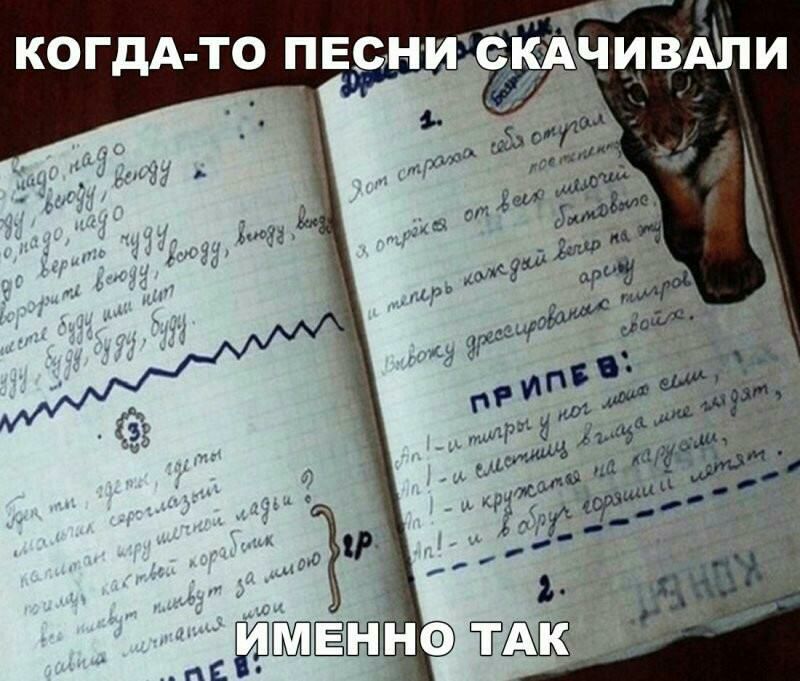 КОГДА-ТО ПЕСНИ СКАЧИВАЛИ
надо, надо
всюду, всюду
надо, надо
верить чуду
всюду, всюду,
вместе буду или нет
буду, буду, буду.
3
Где ты, где ты, где ты
мальчик сероглазый
капитан игрушечной ладьи?
почему, как твой кораблик
все плывут за мною
давние мечтания мои
2р.
1.
Я от страха себя отугал
постепенно,
я отрёкся от всех мелочей
бытовых,
и теперь каждый вечер на эту
арену
Вывожу дрессированых тигров
своих.
ПРИПЕВ:
Ап!-и тигры у ног моих сели,
Ап!-и с лестниц в глаза мне глядят,
Ап!-и кружатся на карусели,
Ап!-и в обруч горящий летят.
2.
КОНЕЦ
ИМЕННО ТАК